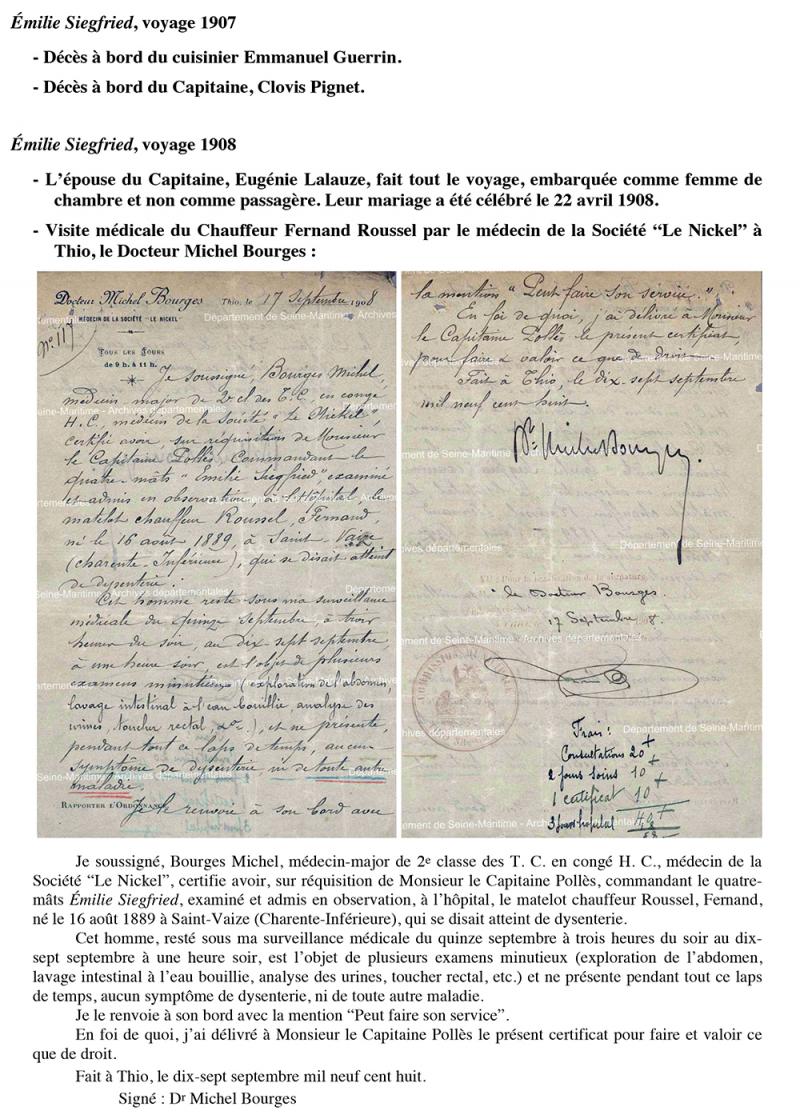 Émilie Siegfried, voyage 1907
- Décès à bord du cuisinier Emmanuel Guerrin.
- Décès à bord du Capitaine, Clovis Pignet.
Émilie Siegfried, voyage 1908
- L’épouse du Capitaine, Eugénie Lalauze, fait tout le voyage, embarquée comme femme de
chambre et non comme passagère. Leur mariage a été célébré le 22 avril 1908.
- Visite médicale du Chauffeur Fernand Roussel par le médecin de la Société “Le Nickel” à
Thio, le Docteur Michel Bourges :
Docteur Michel Bourges Thio, le 17 Septembre 1908
MÉDECIN DE LA SOCIÉTÉ "LE NICKEL"
N° 117
TOUS LES JOURS
de 9 h. à 11 h.
Je soussigné, Bourges Michel,
médecin major de 2e cl des T.C. en congé
H.C. médecin de la Société "Le Nickel",
certifie avoir, sur réquisition de Monsieur
le Capitaine Pollès, Commandant le
quatre-mâts "Emilie Siegfried", examiné
et admis en observation, à l'hôpital, le
matelot chauffeur Roussel, Fernand,
né le 16 août 1889, à Saint-Vaize
(charente-Inférieure), qui se disait atteint
de dysenterie.
Cet homme resté sous ma surveillance
médicale du quinze Septembre, à trois
heures du soir, au dix sept septembre,
à une heure soir, est l'objet de plusieurs
examens minutieux (exploration de l'abdomen,
lavage intestinal à l'eau bouillie, analyse des
urines, toucher rectal, etc.), et ne présente,
pendant tout ce laps de temps, aucun
symptôme de dysenterie ni de toute autre
maladie.
RAPPORTER L'ORDONNANCE
Je le renvoie à son bord avec
la mention "Peut faire son service".
En foi de quoi, j'ai délivré à Monsieur
le Capitaine Pollès le présent certificat,
pour faire et valoir ce que de droit.
Fait à Thio, le dix-sept septembre
mil neuf cent huit.
Dr Michel Bourges.
le Docteur Bourges.
17 Septembre 8.
Frais :
Consultations 20
2 jours soins 10
1 certificat 10
3 jours hopital
Département de Seine-Maritime - Archives départementales
Je soussigné, Bourges Michel, médecin-major de 2e classe des T. C. en congé H. C., médecin de la
Société “Le Nickel”, certifie avoir, sur réquisition de Monsieur le Capitaine Pollès, commandant le quatre-
mâts Émilie Siegfried, examiné et admis en observation, à l’hôpital, le matelot chauffeur Roussel, Fernand,
né le 16 août 1889 à Saint-Vaize (Charente-Inférieure), qui se disait atteint de dysenterie.
Cet homme, resté sous ma surveillance médicale du quinze septembre à trois heures du soir au dix-
sept septembre à une heure soir, est l’objet de plusieurs examens minutieux (exploration de l’abdomen,
lavage intestinal à l’eau bouillie, analyse des urines, toucher rectal, etc.) et ne présente pendant tout ce laps
de temps, aucun symptôme de dysenterie, ni de toute autre maladie.
Je le renvoie à son bord avec la mention “Peut faire son service”.
En foi de quoi, j’ai délivré à Monsieur le Capitaine Pollès le présent certificat pour faire et valoir ce
que de droit.
Fait à Thio, le dix-sept septembre mil neuf cent huit.
Signé : Dr Michel Bourges